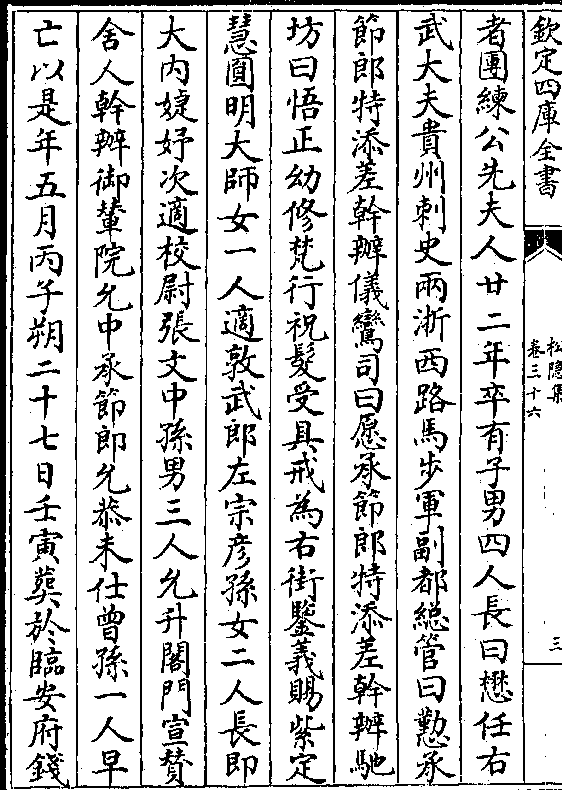 欽定四庫全書
松隱集
卷三十六
三
者團練公先夫人廿二年卒有子男四人長曰懋任右
武大夫貴州刺史兩浙西路馬步軍副都總管曰懃承
節郎特添差幹辦儀鸞司曰愿承節郎特添差幹辦馳
坊曰悟正幼修梵行祝髮受具戒為右街鑒義賜紫定
慧圓明大師女一人適敦武郎左宗彥孫女二人長即
大内婕妤次適校尉張文中孫男三人允升閤門宣贊
舍人幹辦御輦院允中承節郎允恭未仕曾孫一人早
亡以是年五月丙子朔二十七日壬寅葬於臨安府錢